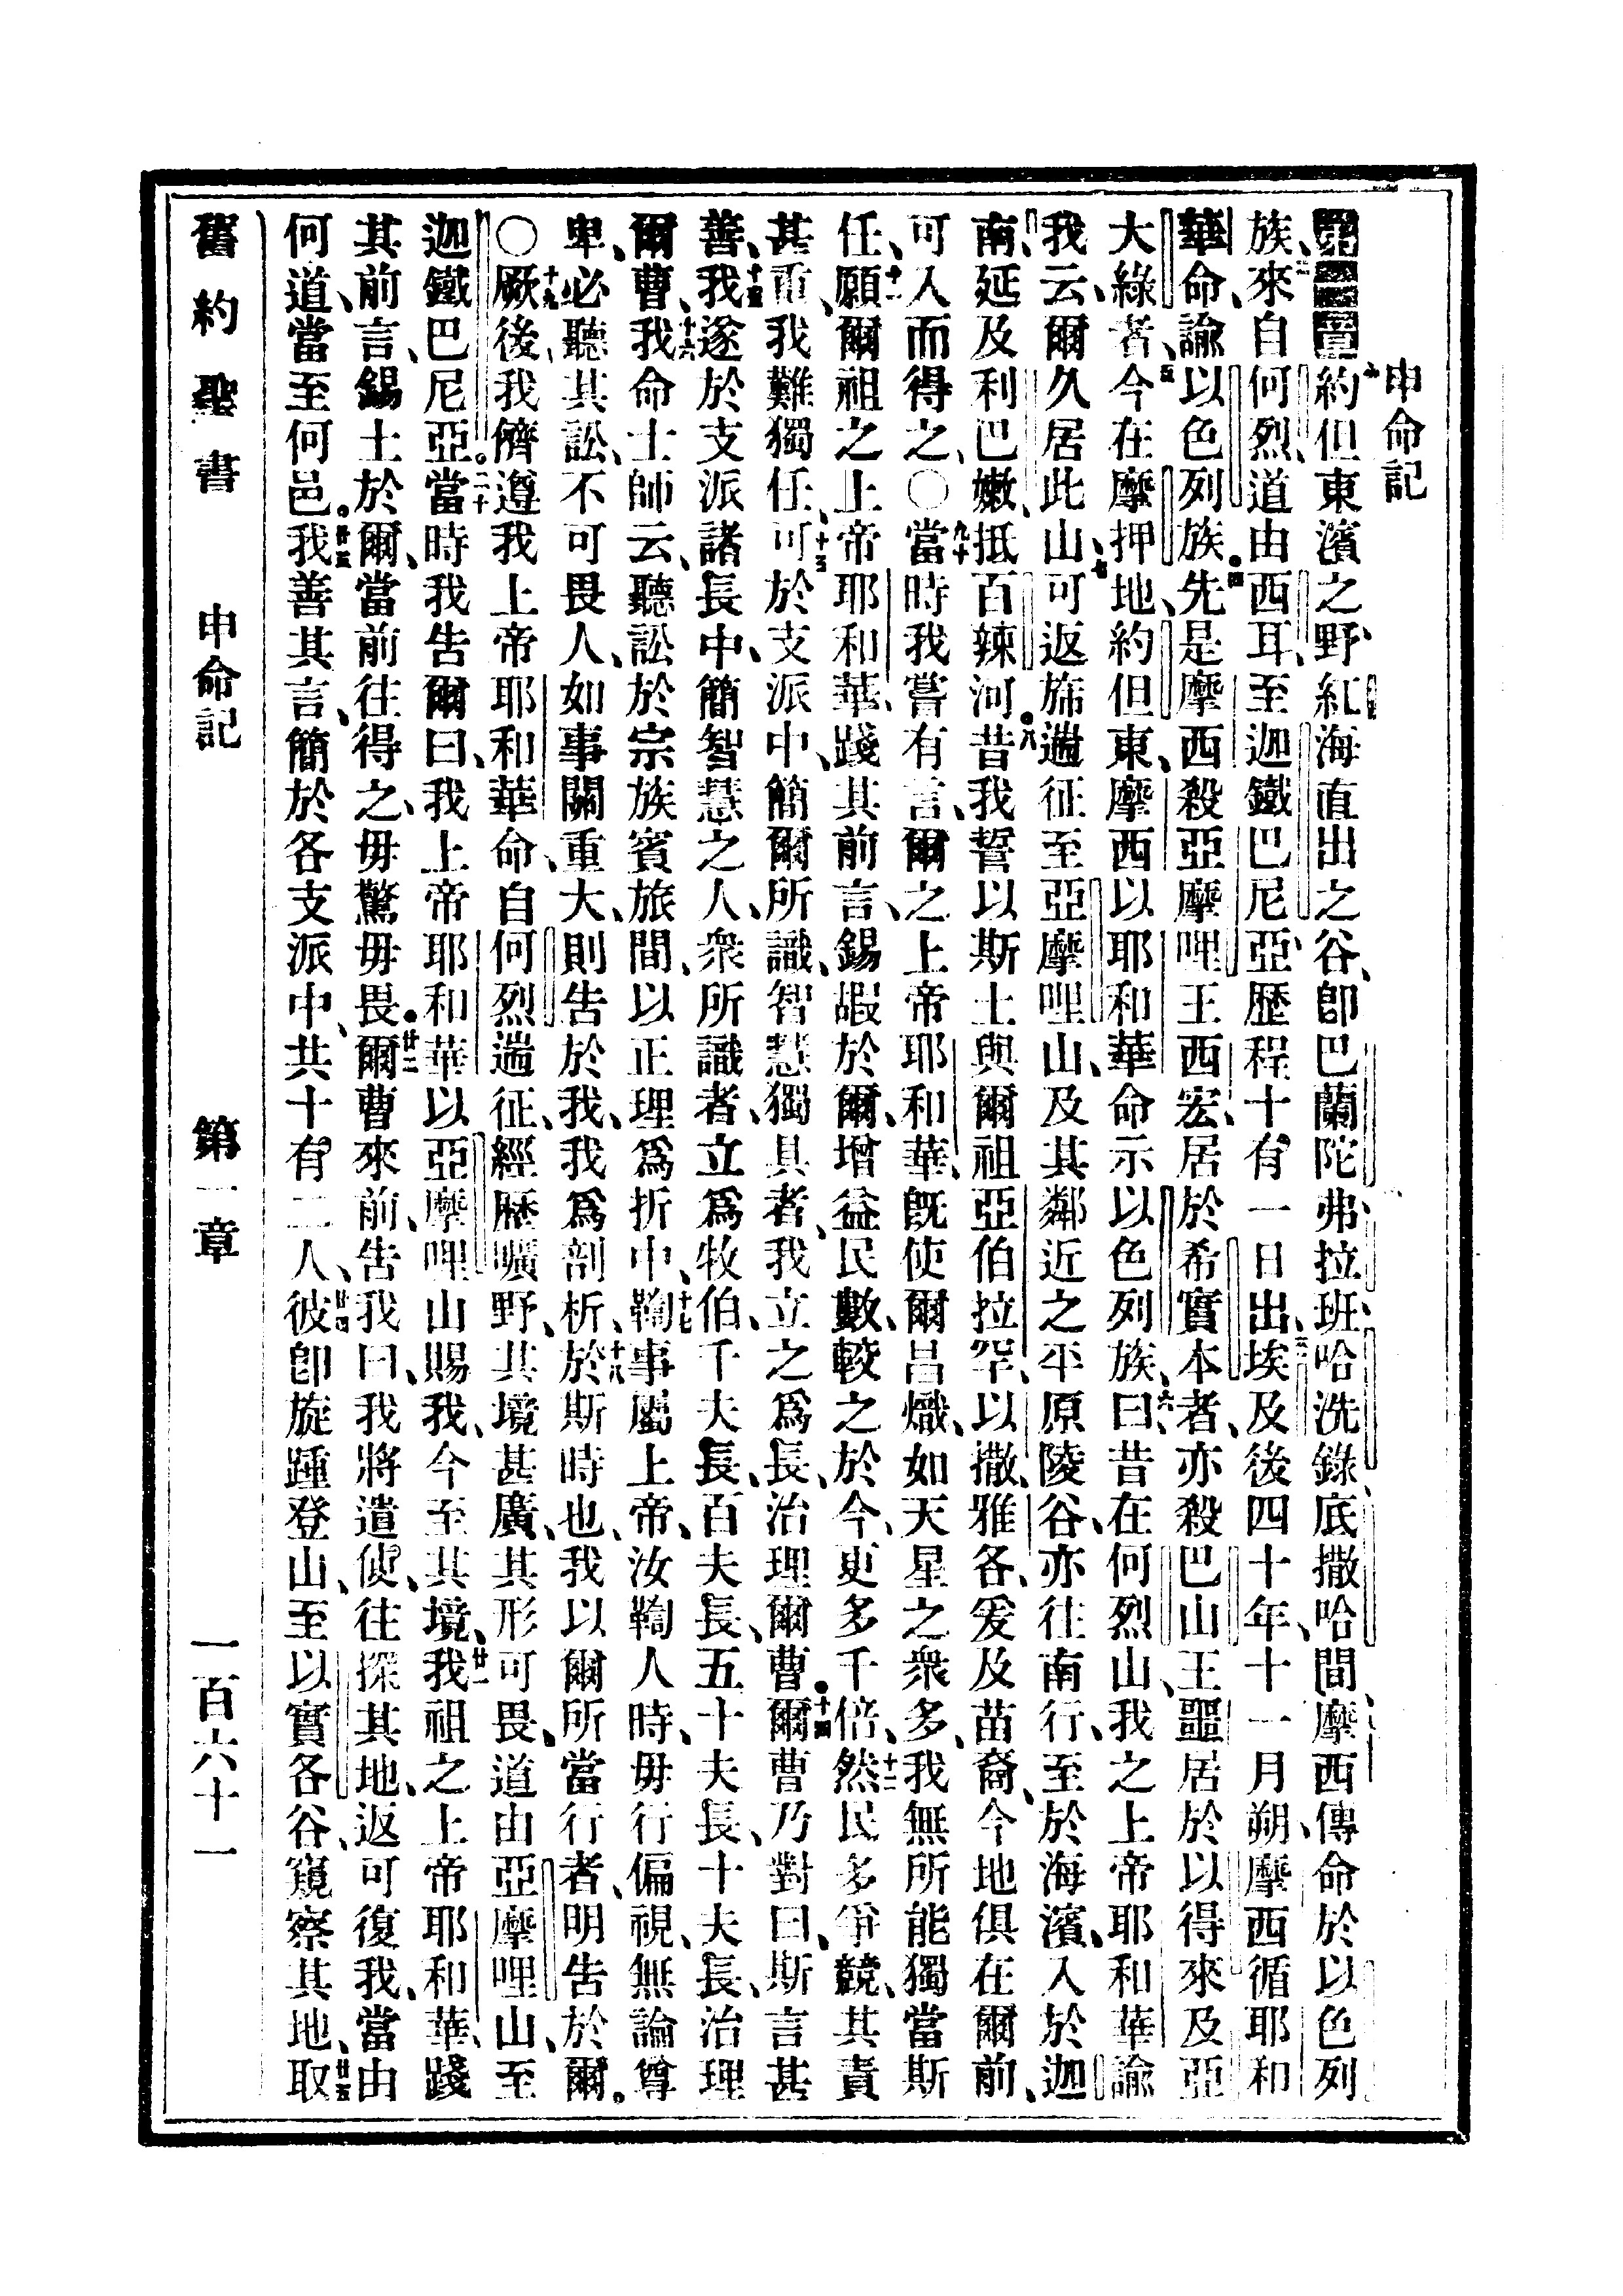 申命記
第一章 一約但東濱之野、紅海直出之谷、卽巴蘭陀弗拉班哈洗錄底撒哈間、摩西傳命於以色列
族、二來自何烈、道由西耳、至迦鐵巴尼亞、歷程十有一日、三出埃及後四十年、十一月朔、摩西循耶和
華命、諭以色列族。四先是摩西殺亞摩哩王西宏、居於希實本者、亦殺巴山王噩、居於以得來及亞
大綠者、五今在摩押地、約但東、摩西以耶和華命示以色列族、六曰、昔在何烈山、我之上帝耶和華諭
我云、爾久居此山、七可返旆遄征、至亞摩哩山、及其鄰近之平原陵谷、亦往南行、至於海濱、入於迦
南、延及利巴嫩、抵百辣河。八昔我誓以斯土與爾祖亞伯拉罕、以撒、雅各、爰及苗裔、今地俱在爾前、
可入而得之、〇九當時我嘗有言、十爾之上帝耶和華、旣使爾昌熾、如天星之衆多、我無所能獨當斯
任、十一願爾祖之上帝耶和華、踐其前言、錫嘏於爾、增益民數、較之於今、更多千倍、十二然民多爭競、其責
甚重、我難獨任、十三可於支派中、簡爾所識、智慧獨具者、我立之爲長、治理爾曹。十四爾曹乃對曰、斯言甚
善、十五我遂於支派諸長中、簡智慧之人、衆所識者、立爲牧伯、千夫長、百夫長、五十夫長、十夫長、治理
爾曹、十六我命士師云、聽訟於宗族賓旅間、以正理爲折中、十七鞫事屬上帝、汝鞫人時、毋行偏視、無論尊
卑、必聽其訟、不可畏人、如事關重大、則告於我、我爲剖析、十八於斯時也、我以爾所當行者、明告於爾。
〇十九厥後、我儕遵我上帝耶和華命、自何烈遄征、經歷曠野、其境甚廣、其形可畏、道由亞摩哩山、至
迦鐵巴尼亞。二十當時我告爾曰、我上帝耶和華以亞摩哩山賜我、今至其境、廿一我祖之上帝耶和華、踐
其前言、錫土於爾、當前往得之、毋驚毋畏。廿二爾曹來前、告我曰、我將遣使、往探其地、返可復我、當由
何道、當至何邑。廿三我善其言、簡於各支派中、共十有二人、廿四彼卽旋踵登山、至以實各谷、窺察其地、廿五取
舊約聖書 申命記 第一章 一百六十一